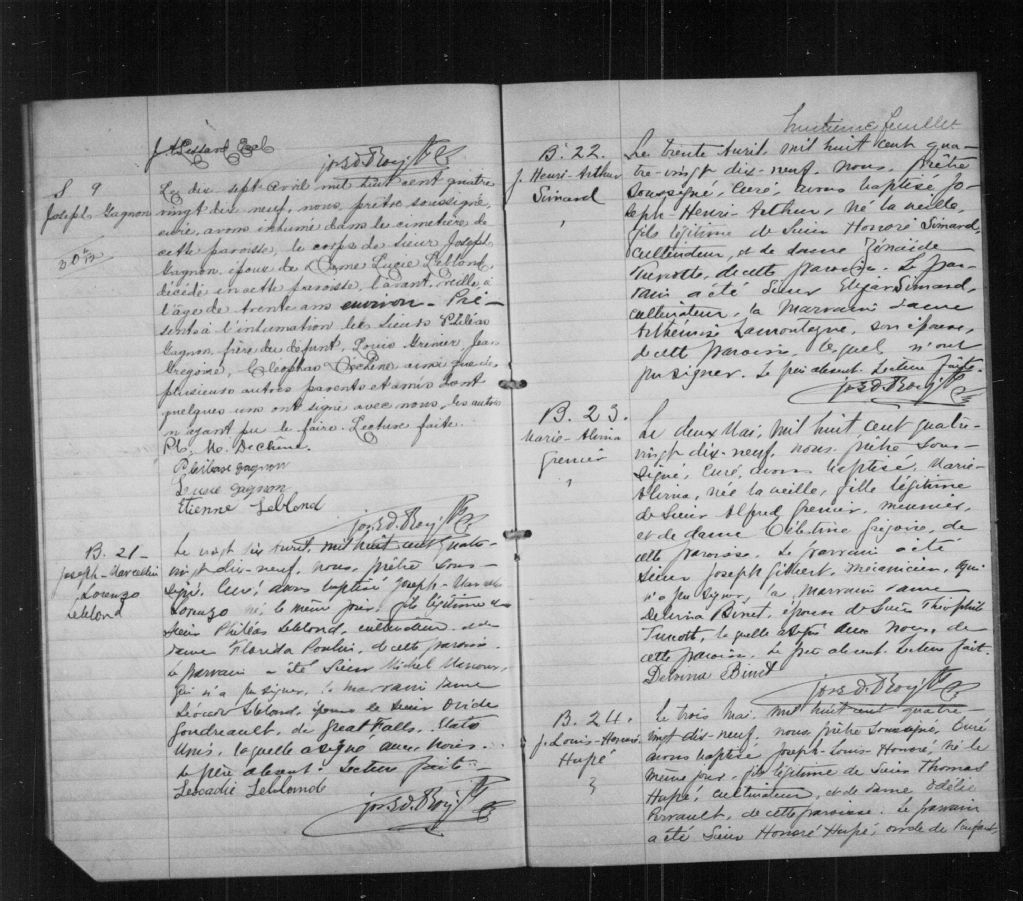 J. A. Lessard Eccl
Jos. D. Roy Ptre
S 9
Joseph Gagnon
Le dix sept avril mil huit cent quatre
vingt dix neuf, nous, prêtre soussigné,
curé, avons inhumé dans le cimetière de
cette paroisse, le corps de sieur Joseph
Gagnon, époux de Dame Lucie Leblond,
décédé en cette paroisse, l'avant veille, à
l'âge de trente ans environ - Pré-
sents à l'inhumation les sieurs Philéas
Gagnon, frère du défunt, Louis Grenier, Jean
Gregoire, Cléophas Dechène ainsi que de
plusieurs autres parents et amis dont
quelques uns ont signé avec nous, les autres
n'ayant pu le faire. Lecture faite.
Dechène.
gagnon
Lucie gagnon
Etienne Leblond
Jos. D. Roy Ptre
B. 21-
Joseph-Marcellin
Lorenzo
Leblond
Le vingt six avril, mil huit cent quatre-
vingt dix-neuf, nous, prêtre sous-
signé, curé, avons baptisé Joseph-Marcellin
Lorenzo né le même jour, fils légitime de
Sieur Philéas Leblond, cultivateur, et de
dame Florida Poulin, de cette paroisse.
Le parrain a été Sieur Michel
qui n'a pu signer, la marraine dame
Léocadie Leblond, épouse de Sieur Ovide
Goudreault, de Great Falls, États
Unis, laquelle a signé avec nous.
Le père absent. Lecture faite.
Leocadie Leblonde
Jos. D. Roy Ptre
huitième feuillet
B. 22.
J. Henri-Arthur
Simard
Le trente Avril, mil huit cent qua-
tre-vingt dix-neuf, nous, prêtre
soussigné, Curé, avons baptisé Jo-
seph-Henri-Arthur, né la veille,
fils légitime de Sieur Honoré Simard,
cultivateur, et de dame Zénaïde
Turcotte, de cette paroisse. Le par-
rain a été Sieur Elzéar Simard,
cultivateur, la Marraine dame
Arthémise Lamontagne, son épouse,
de cette paroisse, lesquels n'ont
pu signer. Le père absent. Lecture faite.
Jos. D. Roy Ptre
B. 23.
Marie-Alvina
Grenier
Le deux Mai, mil huit cent quatre-
vingt dix-neuf, nous, prêtre sous-
signé, Curé, avons baptisé, Marie-
Alvina, née la veille, fille légitime
de Sieur Alfred Grenier, meunier,
et de dame Célestine Grégoire, de
cette paroisse. Le parrain a été
Sieur Joseph Gilbert, mécanicien, qui
n'a pu signer, la marraine dame
Delvina Binet, épouse de Sieur Théophile
Turcott, laquelle a signé avec nous, de
cette paroisse. Le père absent. Lecture faite.
Delvina Binet
Jos. D. Roy Ptre
B. 24.
J. Louis-Honoré
Hupé
Le trois Mai, mil huit cent quatre-
vingt dix-neuf, nous, prêtre soussigné, Curé
avons baptisé Joseph-Louis-Honoré, né le
même jour, fils légitime de Sieur Thomas
Hupé, cultivateur, et de dame Odélie
Perrault, de cette paroisse. Le parrain
a été Sieur Honoré Hupé, oncle de l'enfant